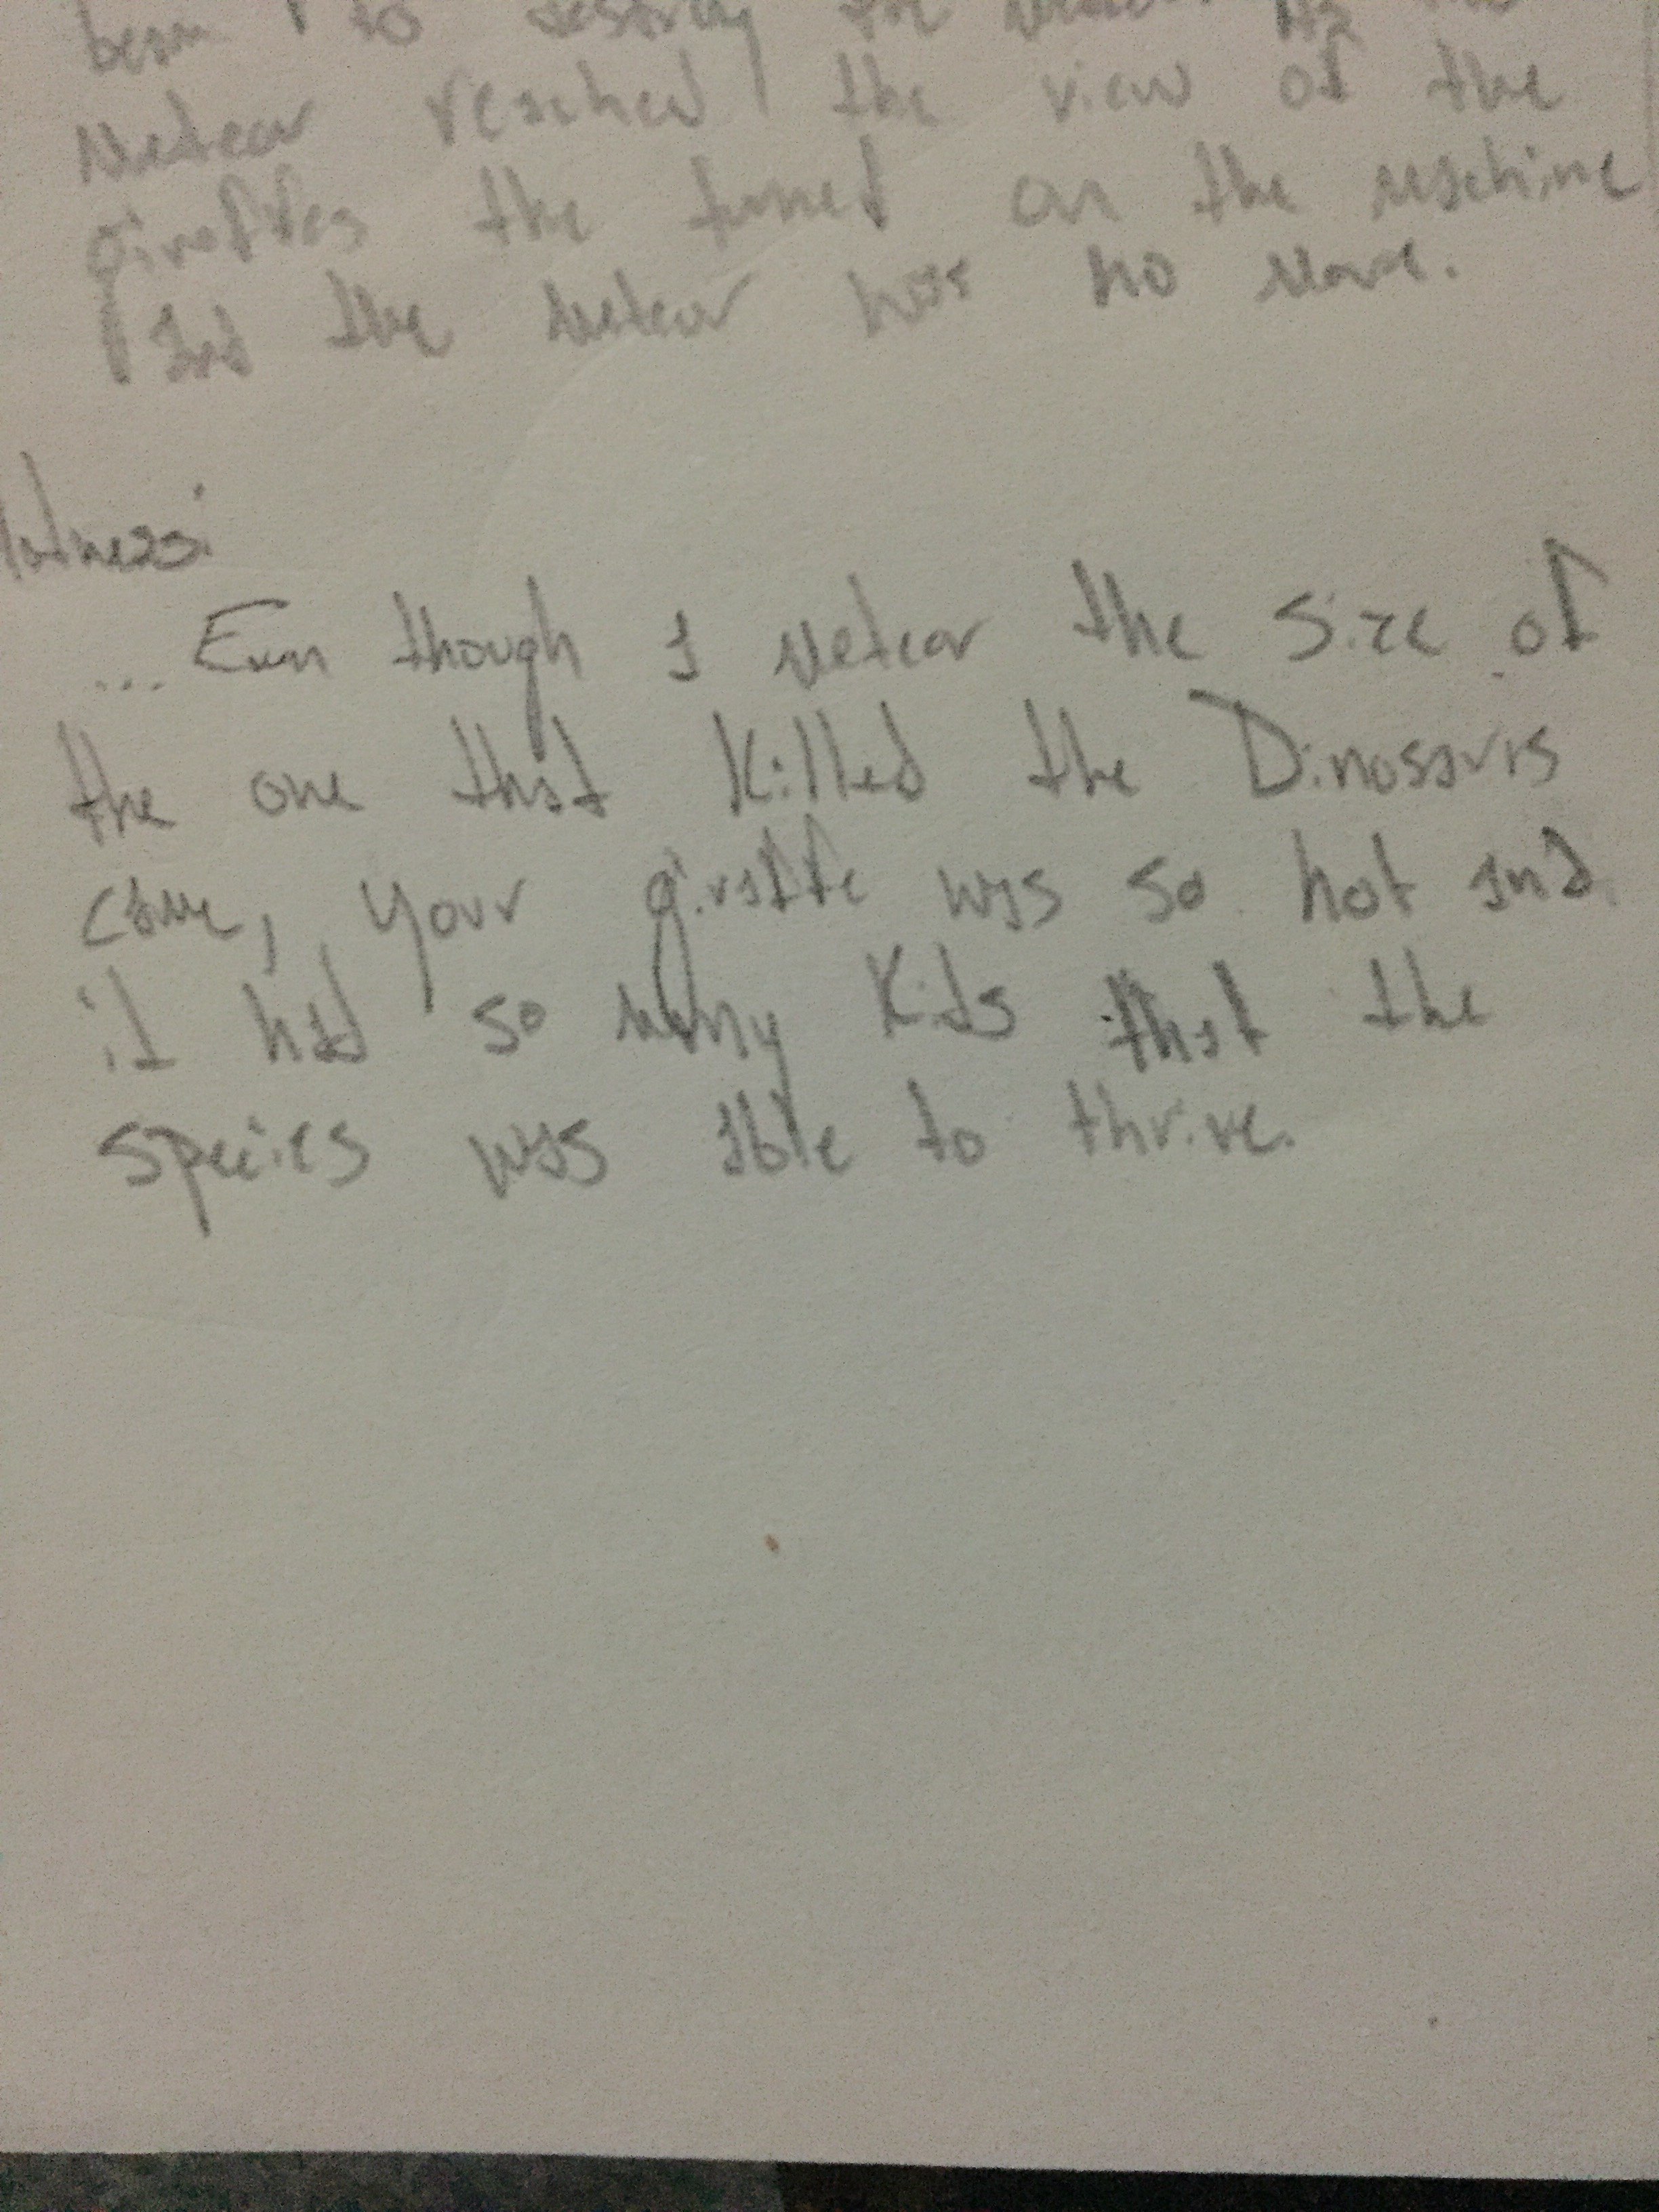 beam to destroy the
Meteor reached the view of the
giraffes the turned on the machine
and the meteor was no more.
Hotness:
... Even though a Meteor the size of
the one that killed the Dinosaurs
came, your giraffe was so hot and
it had so many kids that the
species was able to thrive.